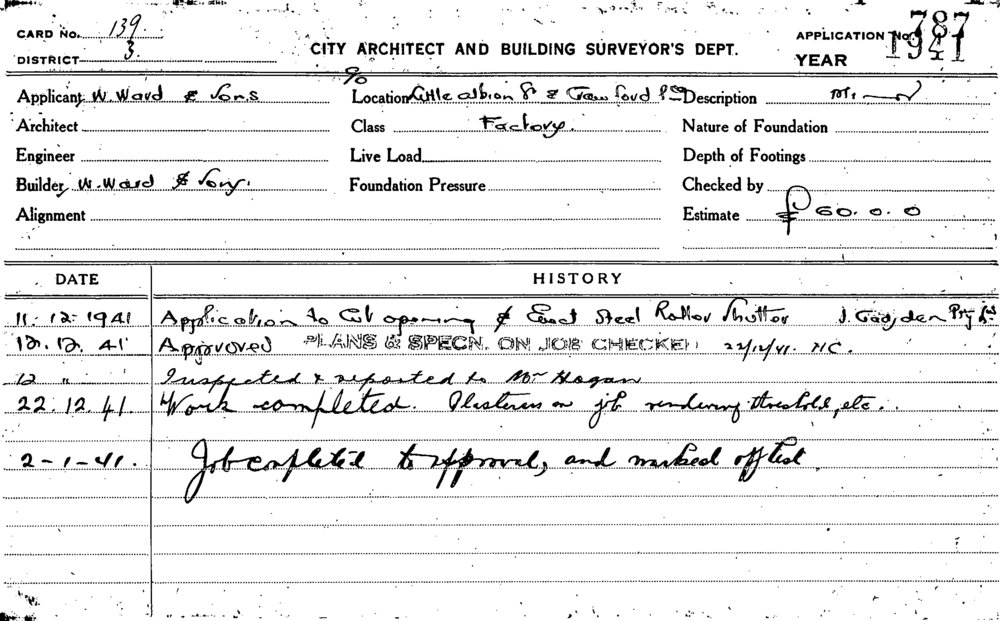 CARD No. 139 APPLICATION No. 787
DISTRICT 3 CITY ARCHITECT AND BUILDING SURVEYOR'S DEPT. YEAR 1941
Applicant W. Ward & Sons Location c/o Little Albion St & Crawford Description
Architect Class Factory. Nature of Foundation
Engineer Live Load Depth of Footings
Builder W. Ward & Sons. Foundation Pressure Checked by
Alignment Estimate £ 60. 0. 0
DATE HISTORY
11. 12. 1941 Application to Cut opening & Erect Steel Roller Shutter J. Gadsden Pty Ltd
12. 12. 41 Approved PLANS & SPECN. ON JOB CHECKED 22/12/41.
12 " Inspected & reported to Mr Hogan
22. 12. 41. Work completed. Plasterers on job rendering threshold, etc.
2-1-41. Job completed to approval, and marked off list.